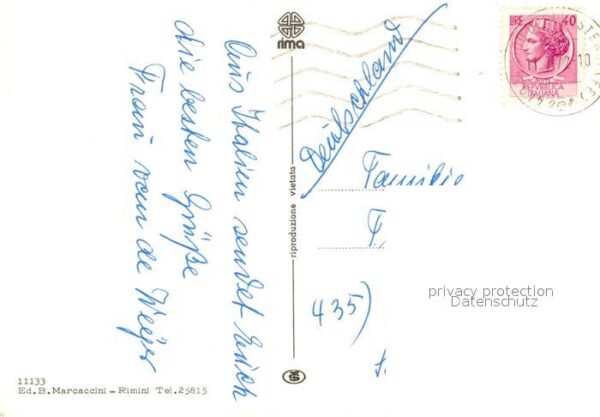 Aus Italien sendet Euch
die besten Grüße
Frau van de
rima
riproduzione vietata
Deutschland
Familie
F.
435)
LIRE 40
REPVBBLICA
ITALIANA
privacy protection
Datenschutz
11133
Ed. B. Marcaccini - Rimini Tel. 25815